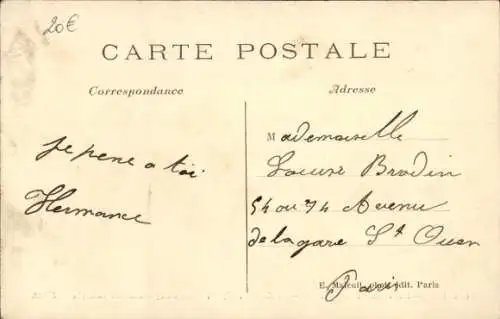 20€
CARTE POSTALE
Correspondance
Adresse
Je pene a toi
Hermance
Mademoiselle
Louise Brodin
54 ou 74 Avenu
de la gare St Ouen
Paris
E. Malcuit, phot. édit. Paris